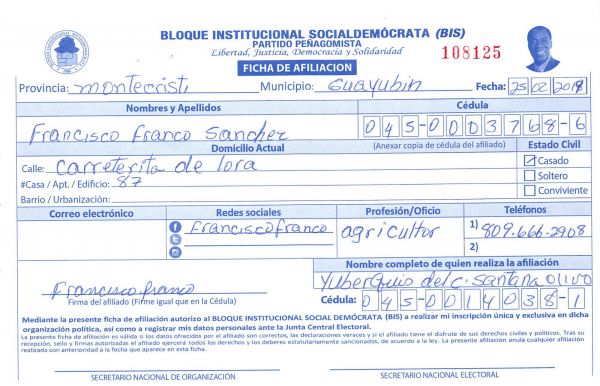 BLOQUE INSTITUCIONAL SOCIALDEMÓCRATA (BIS)
PARTIDO PEÑAGOMISTA
Libertad, Justicia, Democracia y Solidaridad
108125
FICHA DE AFILIACION
Provincia: Montecristi Municipio: Guayubin Fecha: 25 02 2018
Nombres y Apellidos Cédula
Francisco Franco Sanchez 045-0003768-6
Domicilio Actual (Anexar copia de cédula del afiliado) Estado Civil
Calle: Carreterita de lora Casado
#Casa / Apt. / Edificio: 87 Soltero
Barrio / Urbanización: Conviviente
Correo electrónico Redes sociales Profesión/Oficio Teléfonos
Franciscofranco agricultor 1) 809-666-2908
2)
Nombre completo de quien realiza la afiliación
Francisco franco Yuberquis del c. santana olivo
Firma del afiliado (Firme igual que en la Cédula) Cédula: 045-0014038-1
Mediante la presente ficha de afiliación autorizo al BLOQUE INSTITUCIONAL SOCIAL DEMÓCRATA (BIS) a realizar mi inscripción única y exclusiva en dicha
organización política, así como a registrar mis datos personales ante la Junta Central Electoral.
La presente ficha de afiliación es válida si los datos ofrecidos por el afiliado son correctos, las declaraciones veraces y si el titular tiene el disfrute de sus derechos civiles y políticos. Tras su
recepción, sello y firmas autorizadas el afiliado ejercerá todos los derechos y los deberes estatutariamente sancionados, de acuerdo a la ley. La presente afiliación anula cualquier afiliación
realizada con anterioridad a la fecha que aparece en esta ficha.
SECRETARIO NACIONAL DE ORGANIZACIÓN SECRETARIO NACIONAL ELECTORAL